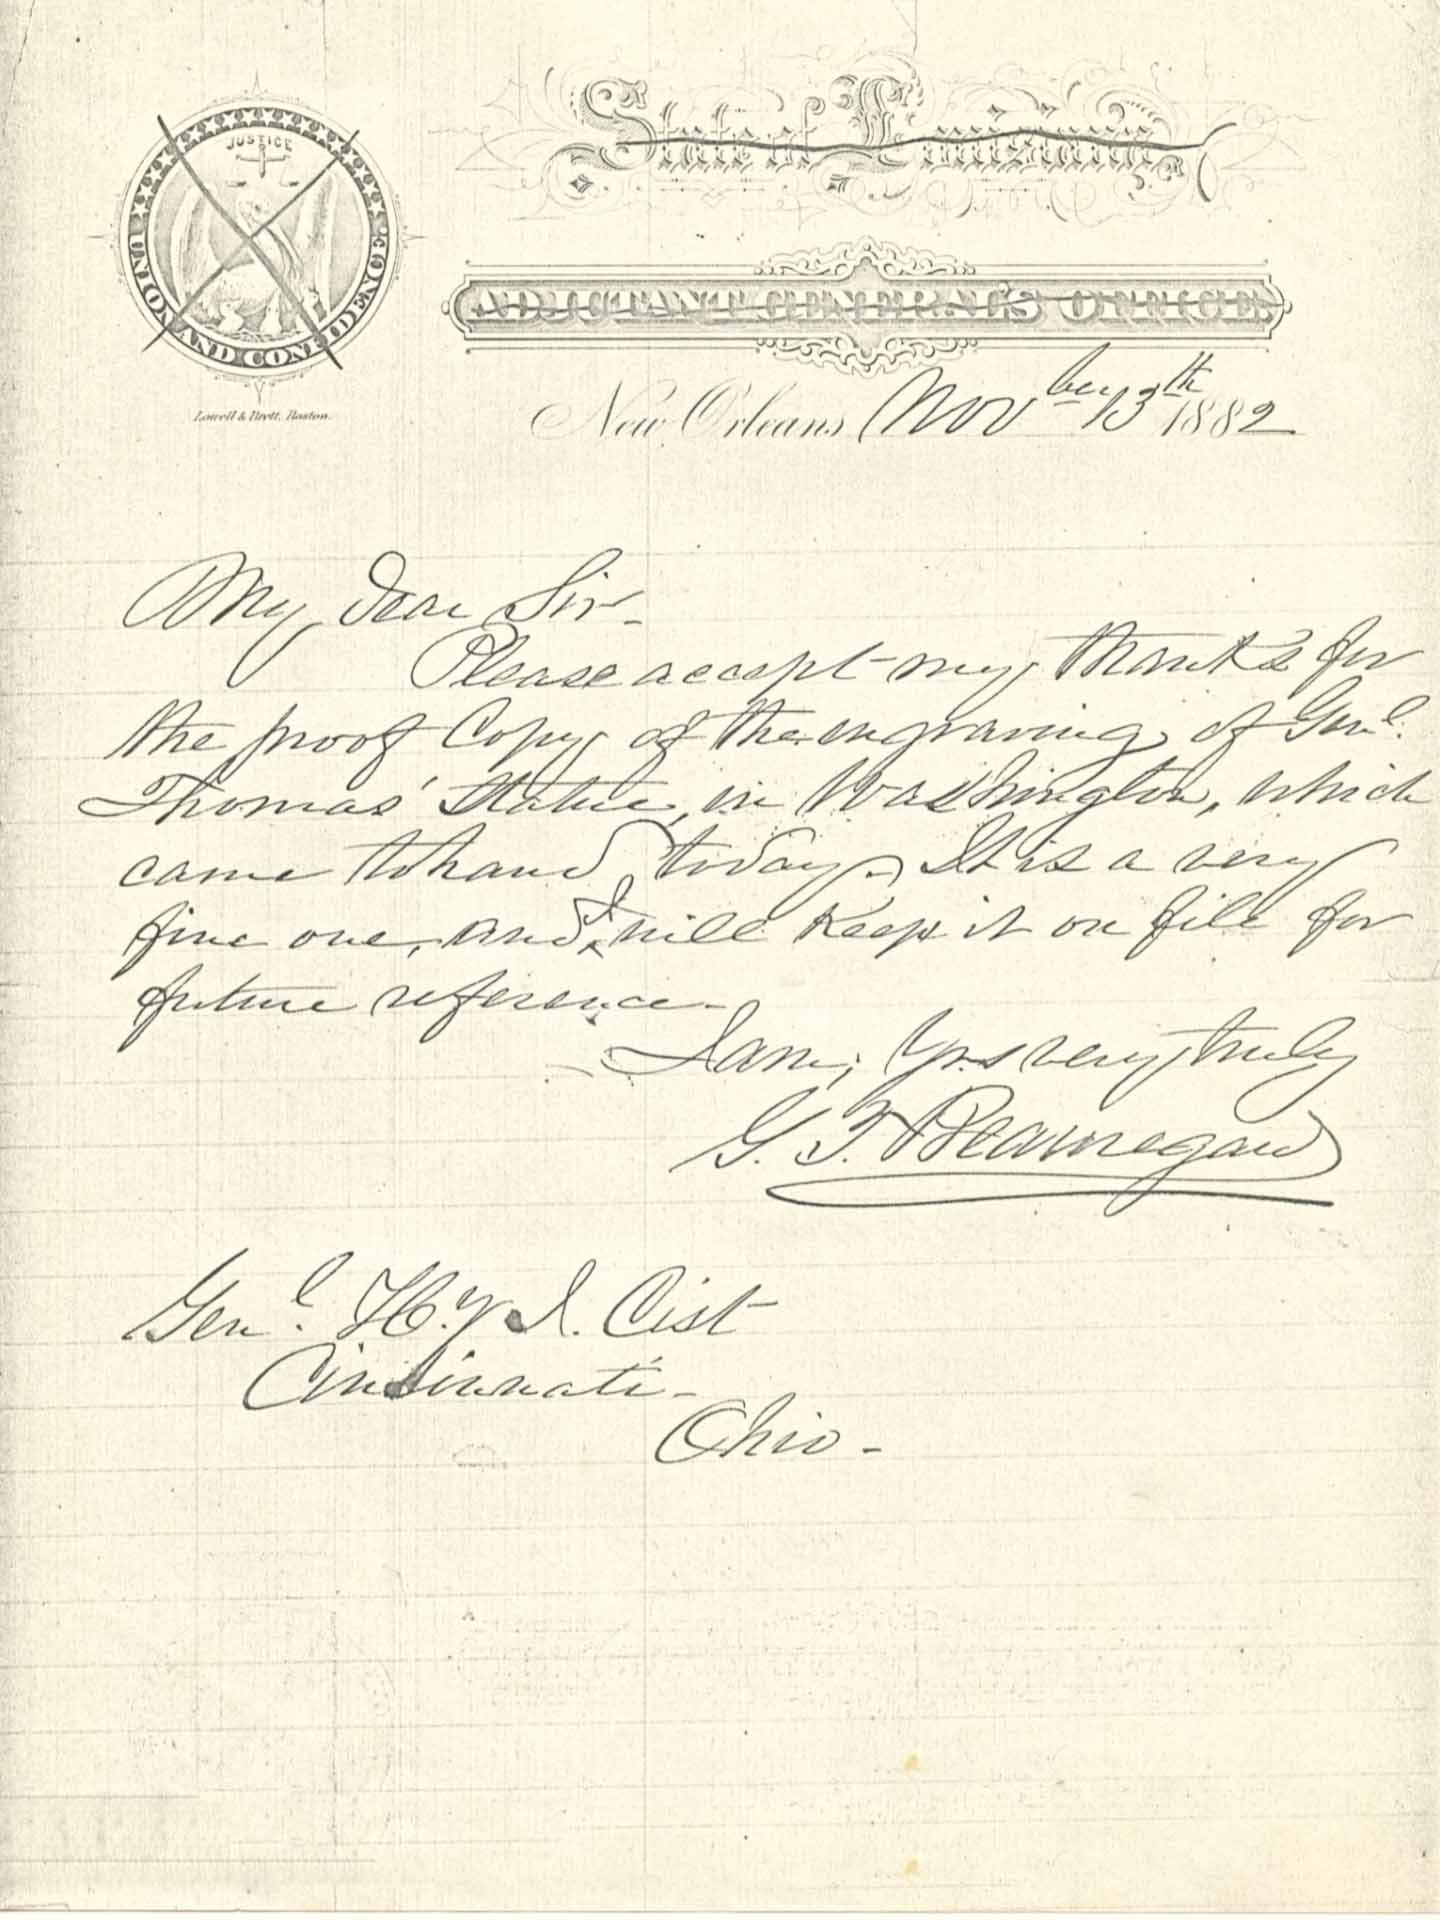 JUSTICE
UNION AND CONFIDENCE
Lowell & Brett, Boston.
State of Louisiana,
ADJUTANT GENERAL'S OFFICE,
New Orleans Nov^ber 13^th 1882
My dear Sir-
Please accept my thanks for
the proof Copy of the engraving of Gen^l.
Thomas' Statue, in Washington, which
came to hand today. It is a very
fine one, and I will keep it on file for
future reference-
I am, Yrs very truly
G. T. Beauregard
Gen^l. H. J. Cist
Cincinnati-
Ohio-